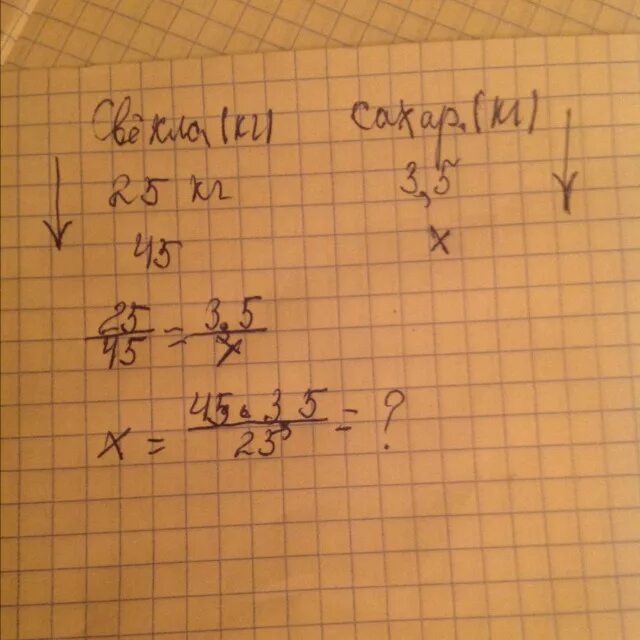 Свёкла (кг) Сахар (кг)
25 кг 3,5
45 x
25/45 = 3,5/x
x = 45 · 3 5/25 = ?